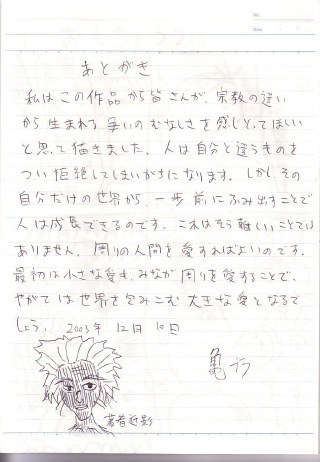 No.
Date
あとがき
私はこの作品から皆さんが、宗教の違い
から生まれる争いのむなしさを感じとってほしい
と思って描きました。人は自分と違うものを
つい拒絶してしまいがちになります。しかし、その
自分だけの世界から、一歩前にふみ出すことで
人は成長できるのです。これはそう難しいことでは
ありません。周りの人間を愛すればよいのです。
最初は小さな愛も、みなが周りを愛することで、
やがては世界を包みこむ大きな愛となるで
しょう。 2003年 12月 10日
亀
著者近影